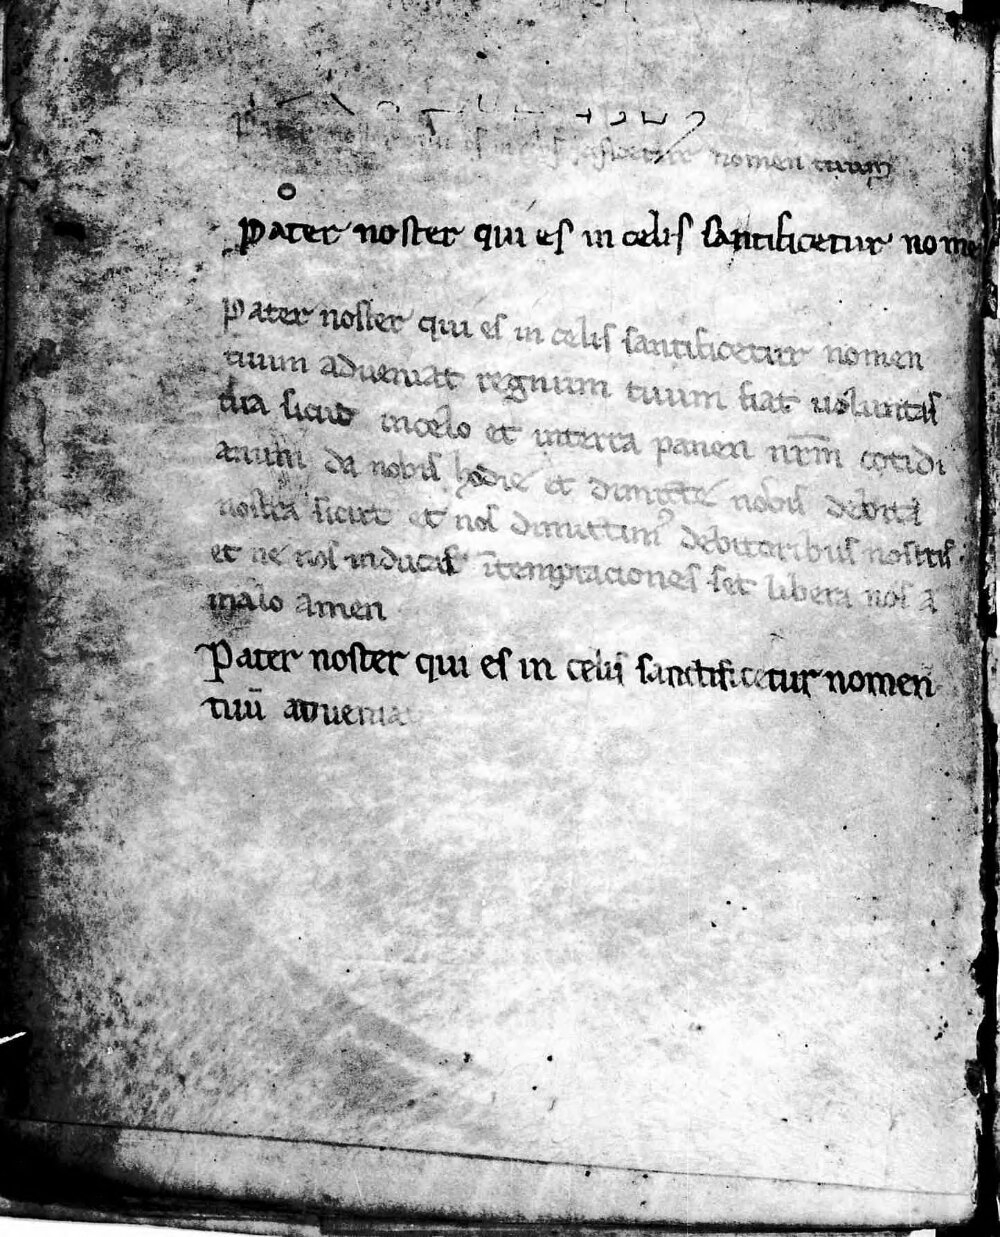 nomen tuum
Pater noster qui es in celis santificetur nome
Pater noster qui es in celis santificetur nomen
tuum adveniat regnum tuum fiat voluntas
tua sicut in celo et in terra panem nr̄m cotidi
anum da nobis hodie et dimitte nobis debita
nostra sicut et nos dimittim⁹ debitoribus nostris.
et ne nos inducas ītemptaciones set libera nos a
malo amen
Pater noster qui es in celis sanctificetur nomen
tuū advenia